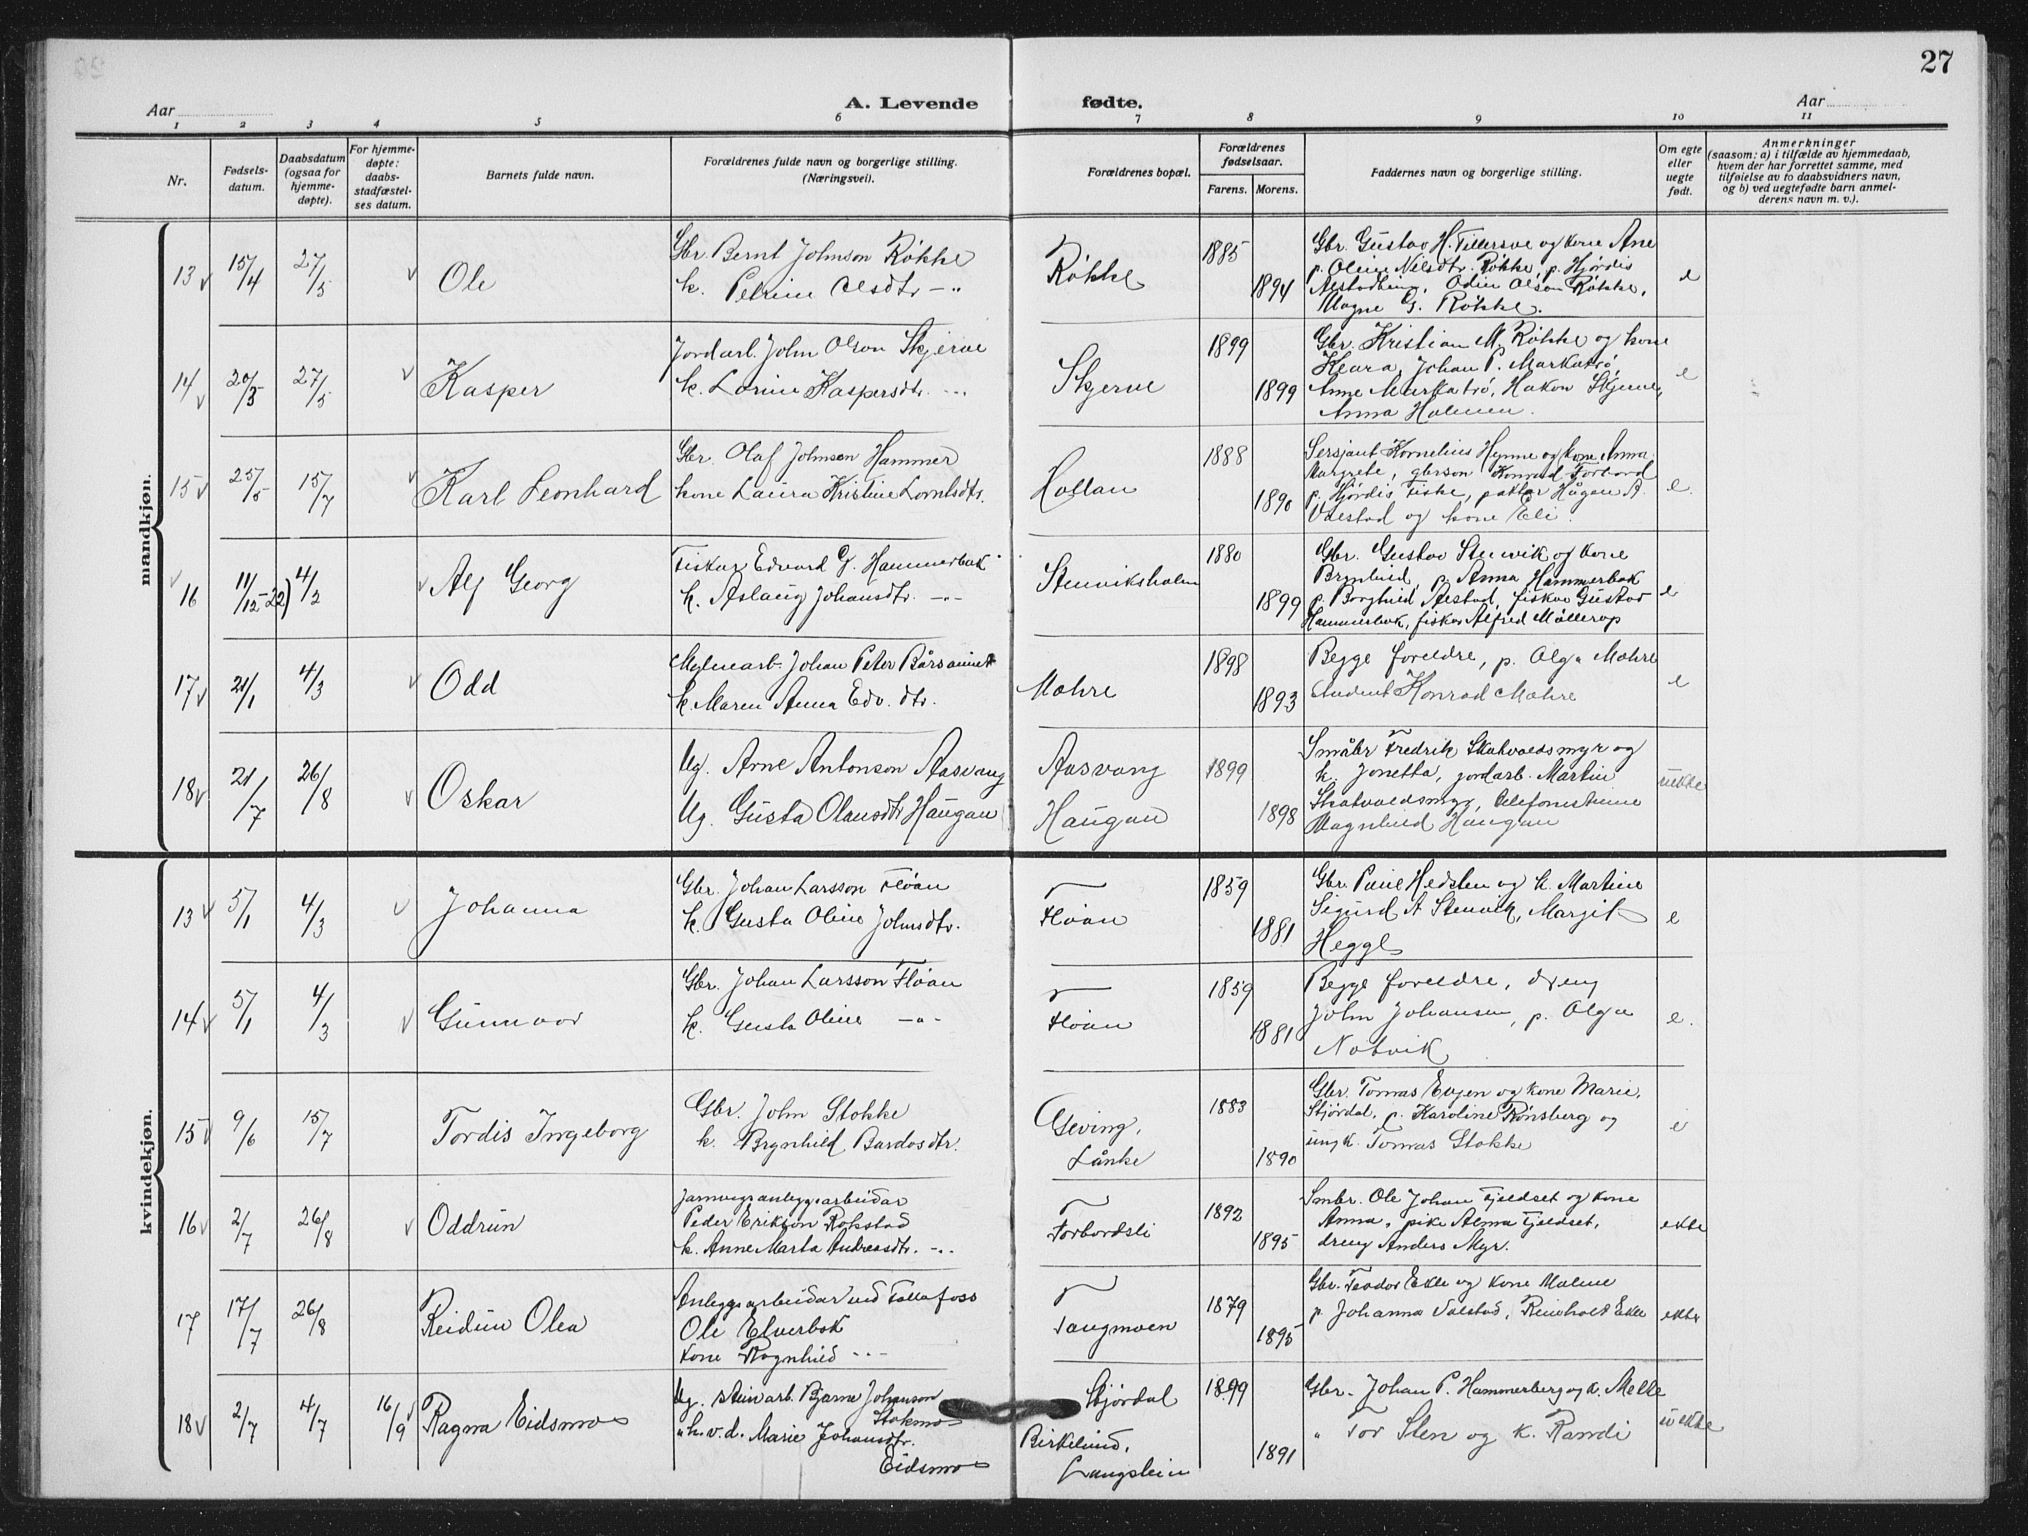 27
Aar
A. Levende fødte.
Aar
1 2 3 4 5 6 7 8 9 10 11
Nr.
Fødsels-
datum.
Daabsdatum
(ogsaa for
hjemme-
døpte).
For hjemme-
døpte:
daabs-
stadfæstel-
ses datum.
Barnets fulde navn.
Forældrenes fulde navn og borgerlige stilling.
(Næringsvei).
Forældrenes bopæl.
Forældrenes
fødselsaar.
Farens. Morens.
Faddernes navn og borgerlige stilling.
Om egte
eller
uegte
født.
Anmerkninger
(saasom: a) i tilfælde av hjemmedaab,
hvem der har forrettet samme, med
tilføielse av to daabsvidners navn,
og b) ved uegtefødte barn anmel-
derens navn m. v.).
mandkjøn.
13 15/4 27/5 Ole
Gbr. Bernt Johnson Røkke
k. Petrine Olsdtr. -"-
Røkke
1885
1894
Gbr. Gustav H. Tillersve og kone Ane
p. Oline Nilsdtr. Røkke, p. Hjørdis
Odin Olson Røkke,
Magne G. Røkke.
e
14 20/3 27/5 Kasper
Jordarb. John Olson Skjerve
k. Lorine Kaspersdtr. -"-
Skjerve
1899
1899
Gbr. Kristian M. Røkke og kone
Klara, Johan P. Markatrø,
Anne Markatrø, Hakon Skjerve,
Anna Holmen.
e
15 25/5 15/7 Karl Leonhard
Gbr. Olaf Johnsen Hammer
kone Laura Kristine Lorntsdtr.
Hollan
1888
1890
Sersjant Kornelius Hynne og kone Anna
Margrete, gbrson Konrad Forbord
p. Hjørdis Fiske, pakkar Hågen A.
Valstad og kone Eli.
e.
16 11/12-22) 4/2 Alf Georg
Fisker Edvard G. Hammerbak
k. Aslaug Johansdtr. -"-
Stenviksholm
1880
1899
Gbr. Gustav Stenvik og kone
Brynhild, p. Anna Hammerbak
p. Borghild Alstad, fisker Gustav
Hammerbak, fisker Alfred Møllerop
e
17 21/1 4/3 Odd
Mølnearb. Johan Peter Bårsaunet
k. Maren Anna Edv. dtr.
Mæhre
1898
1893
Begge foreldre, p. Olga Mæhre
Student Konrad Mæhre
e
18 21/7 26/8 Oskar
Ug. Arne Antonson Aasvang
Ug. Gusta Olausdtr. Haugan
Aasvang
Haugan
1899
1898
Småbr. Fredrik Skatvaldsmyr og
k. Jonetta, jordarb. Martin
Skatvaldsmyr, telefonistinne
Magnhild Haugan
uekte
kvindekjøn.
13 5/1 4/3 Johanna
Gbr. Johan Larsson Fløan
k. Gusta Oline Johnsdtr.
Fløan
1859
1881
Gbr. Paul Hedsten og k. Martine
Sigurd A. Stenvik, Margit
Hegge
e
14 5/1 4/3 Gunnvor
Gbr. Johan Larsson Fløan
k. Gusta Oline -"-
Fløan
1859
1881
Begge foreldre, dreng
John Johansen, p. Olga
Notvik
e.
15 9/6 15/7 Tordis Ingeborg
Gbr. John Stokke
k. Brynhild Bardosdtr.
Geving,
Lånke
1883
1890
Gbr. Tomas Evjen og kone Marie,
Stjørdal, p. Karoline Rønsberg og
ungk. Tomas Stokke
e
16 2/7 26/8 Oddrun
Jarnvegsanleggsarbeidar
Peder Erikson Rokstad
k. Anne Marta Andreasdtr. -"-
Forbordsli
1892
1895
Småbr. Ole Johan Fjeldset og kone
Anna, pike Alma Fjeldset,
dreng Anders Myr.
ekte
17 17/7 26/8 Reidun Olea
Anleggsarbeidar ved Follafoss
Ole Elverbak
kone Ragnhild -"-
Tangmoen
1879
1895
Gbr. Teodor Ekle og kone Maline
p. Johanna Valstad, Reinholdt Ekle
ekte
18 2/7 4/7 16/9 Ragna Eidsmo
Ug. steinarb. Bjarne Johanson
Stokmo
" h.v.d. Marie Johansdtr.
Eidsmo
Stjørdal
Birkelund,
Langstein
1899
1891
Gbr. Johan P. Hammerberg og k. Melle
" Tor Sten og k. Randi
uekte